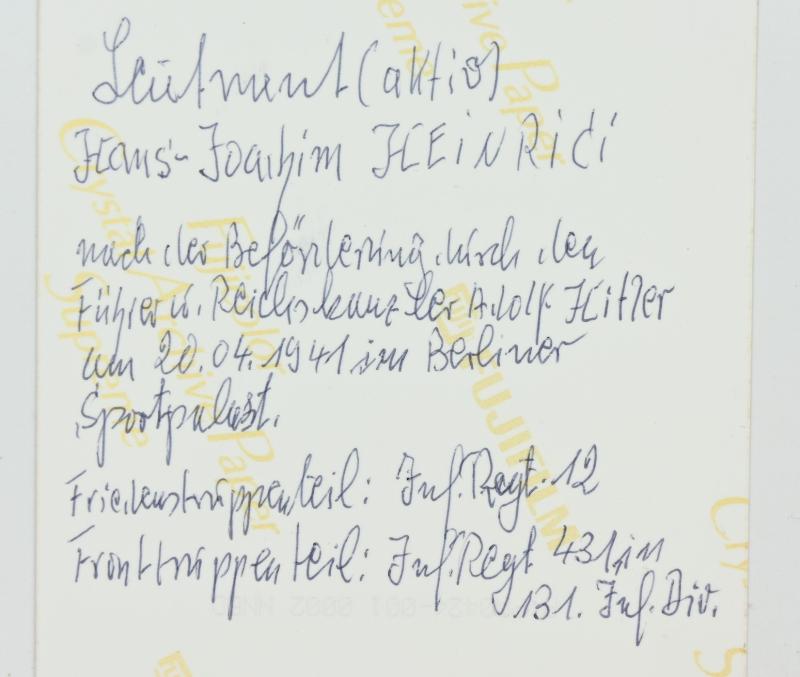 Leutnant (aktiv)
Hans-Joachim HEINRiCi
nach der Beförderung durch den
Führer u. Reichskanzler Adolf Hitler
am 20.04.1941 im Berliner
Sportpalast.
Friedenstruppenteil: Inf. Regt. 12
Fronttruppenteil: Inf. Regt 431 in
131. Inf. Div.
Fujicolor
Crystal Archive Paper
Supreme
FUJIFILM